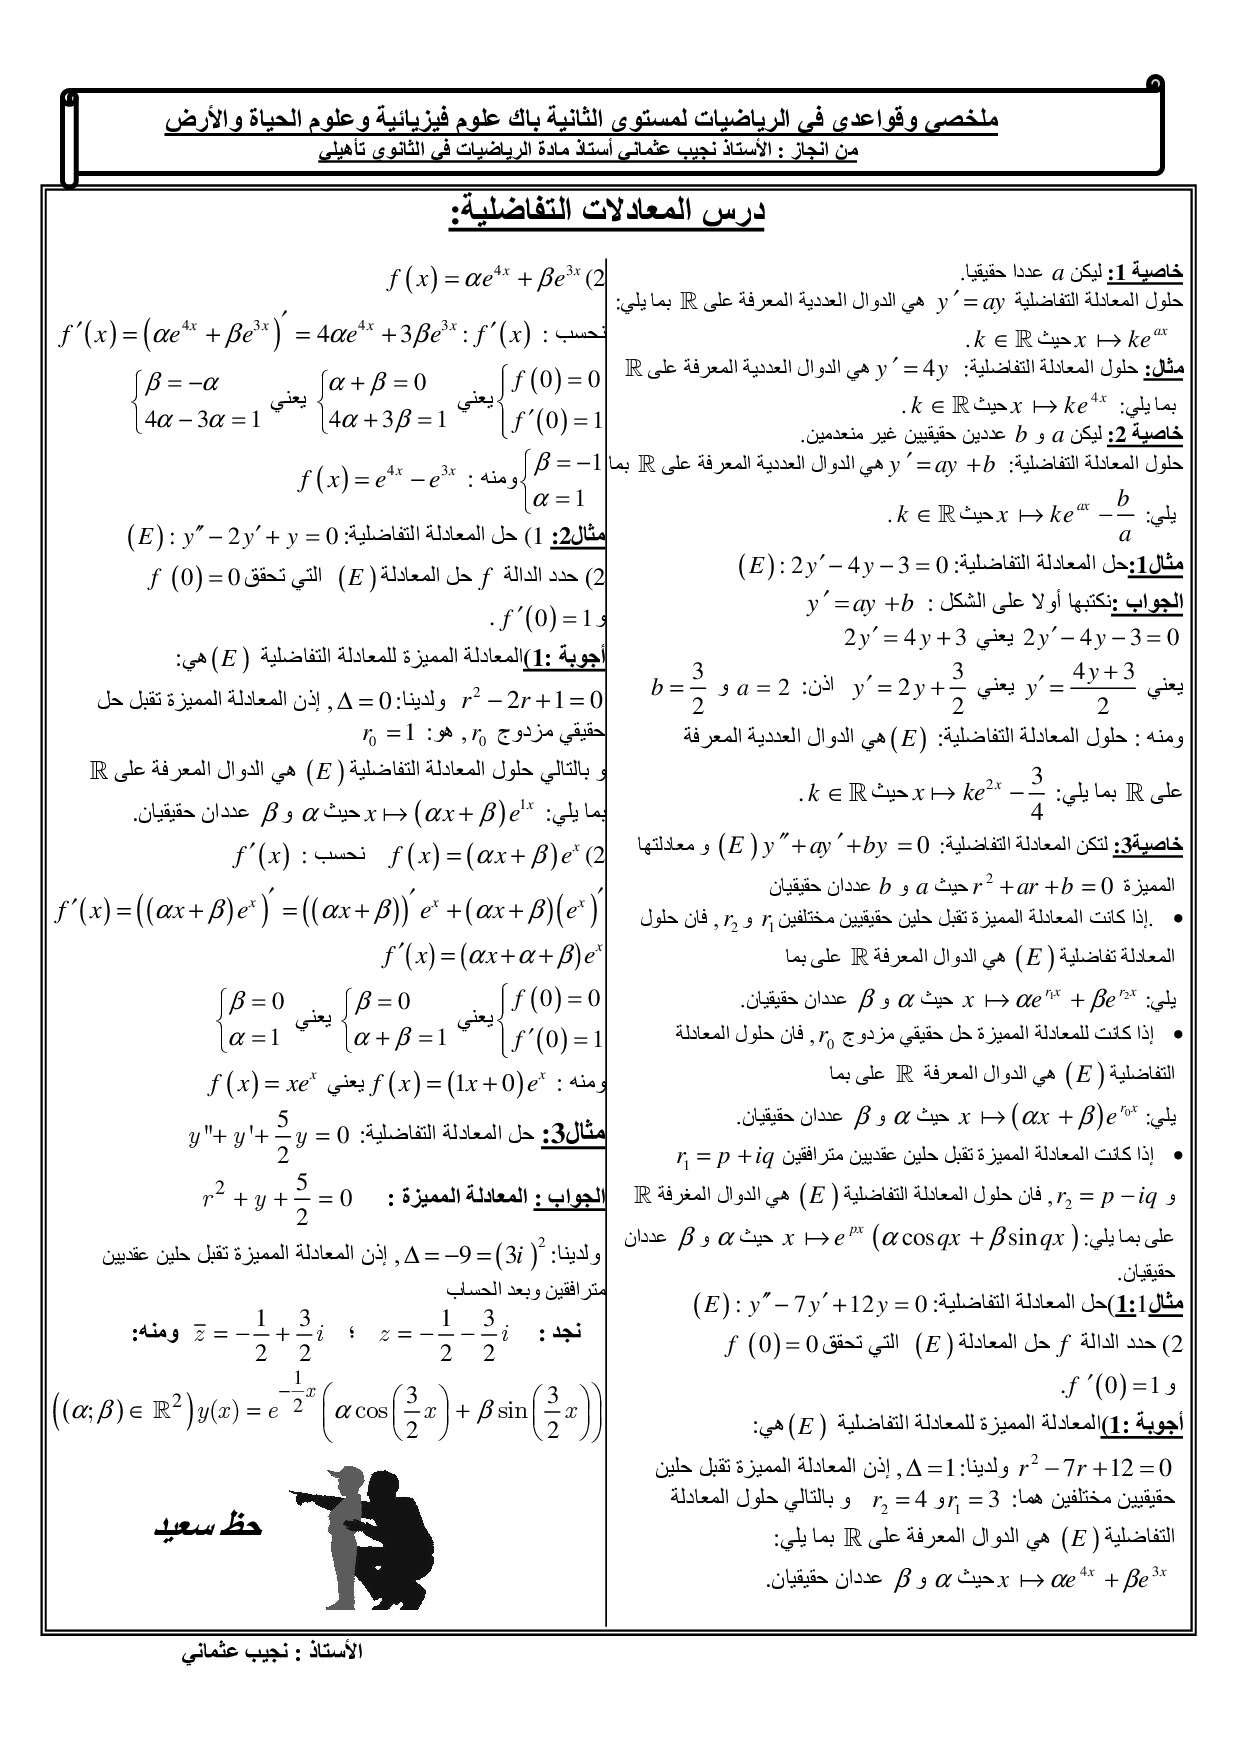 ملخصي وقواعدي في الرياضيات لمستوى الثانية باك علوم فيزيائية وعلوم الحياة والأرض
من انجاز : الأستاذ نجيب عثماني أستاذ مادة الرياضيات في الثانوي تأهيلي
درس المعادلات التفاضلية:
خاصية 1: ليكن a عددا حقيقيا.
حلول المعادلة التفاضلية y′ = ay هي الدوال العددية المعرفة على ℝ بما يلي:
x ↦ ke^{ax} حيث k ∈ ℝ .
مثال: حلول المعادلة التفاضلية: y′ = 4y هي الدوال العددية المعرفة على ℝ
بما يلي: x ↦ ke^{4x} حيث k ∈ ℝ .
خاصية 2: ليكن a و b عددين حقيقيين غير منعدمين.
حلول المعادلة التفاضلية: y′ = ay + b هي الدوال العددية المعرفة على ℝ بما
يلي: x ↦ ke^{ax} − b/a حيث k ∈ ℝ .
مثال1:حل المعادلة التفاضلية: (E): 2y′ − 4y − 3 = 0
الجواب :نكتبها أولا على الشكل : y′ = ay + b
2y′ − 4y − 3 = 0 يعني 2y′ = 4y + 3
يعني y′ = (4y + 3)/2 يعني y′ = 2y + 3/2 اذن: a = 2 و b = 3/2
ومنه : حلول المعادلة التفاضلية: (E) هي الدوال العددية المعرفة
على ℝ بما يلي: x ↦ ke^{2x} − 3/4 حيث k ∈ ℝ .
خاصية3: لتكن المعادلة التفاضلية: (E) y″ + ay′ + by = 0 و معادلتها
المميزة r² + ar + b = 0 حيث a و b عددان حقيقيان
• .إذا كانت المعادلة المميزة تقبل حلين حقيقيين مختلفين r₁ و r₂ , فان حلول
المعادلة تفاضلية (E) هي الدوال المعرفة ℝ على بما
يلي: x ↦ αe^{r₁x} + βe^{r₂x} حيث α و β عددان حقيقيان.
• إذا كانت للمعادلة المميزة حل حقيقي مزدوج r₀ , فان حلول المعادلة
التفاضلية (E) هي الدوال المعرفة ℝ على بما
يلي: x ↦ (αx + β)e^{r₀x} حيث α و β عددان حقيقيان.
• إذا كانت المعادلة المميزة تقبل حلين عقديين مترافقين r₁ = p + iq
و r₂ = p − iq , فان حلول المعادلة التفاضلية (E) هي الدوال المغرفة ℝ
على بما يلي: x ↦ e^{px} (α cos qx + β sin qx) حيث α و β عددان
حقيقيان.
مثال1:1)حل المعادلة التفاضلية: (E): y″ − 7y′ + 12y = 0
2) حدد الدالة f حل المعادلة (E) التي تحقق f(0) = 0
و f′(0) = 1.
أجوبة :1)المعادلة المميزة للمعادلة التفاضلية (E) هي:
r² − 7r + 12 = 0 ولدينا: Δ = 1 , إذن المعادلة المميزة تقبل حلين
حقيقيين مختلفين هما: r₁ = 3 و r₂ = 4 و بالتالي حلول المعادلة
التفاضلية (E) هي الدوال المعرفة على ℝ بما يلي:
x ↦ αe^{4x} + βe^{3x} حيث α و β عددان حقيقيان.
2) f(x) = αe^{4x} + βe^{3x}
نحسب : f′(x) : f′(x) = (αe^{4x} + βe^{3x})′ = 4αe^{4x} + 3βe^{3x}
{f(0) = 0 ; f′(0) = 1 يعني {α + β = 0 ; 4α + 3β = 1 يعني {β = −α ; 4α − 3α = 1
{β = −1 ; α = 1 ومنه : f(x) = e^{4x} − e^{3x}
مثال2: 1) حل المعادلة التفاضلية: (E): y″ − 2y′ + y = 0
2) حدد الدالة f حل المعادلة (E) التي تحقق f(0) = 0
و f′(0) = 1 .
أجوبة :1)المعادلة المميزة للمعادلة التفاضلية (E) هي:
r² − 2r + 1 = 0 ولدينا: Δ = 0 , إذن المعادلة المميزة تقبل حل
حقيقي مزدوج r₀ , هو: r₀ = 1
و بالتالي حلول المعادلة التفاضلية (E) هي الدوال المعرفة على ℝ
بما يلي: x ↦ (αx + β)e^{1x} حيث α و β عددان حقيقيان.
2) f(x) = (αx + β)e^x نحسب : f′(x)
f′(x) = ((αx + β)e^x)′ = ((αx + β))′ e^x + (αx + β)(e^x)′
f′(x) = (αx + α + β)e^x
{f(0) = 0 ; f′(0) = 1 يعني {β = 0 ; α + β = 1 يعني {β = 0 ; α = 1
ومنه : f(x) = (1x + 0)e^x يعني f(x) = xe^x
مثال3: حل المعادلة التفاضلية: y'' + y' + 5/2 y = 0
الجواب : المعادلة المميزة : r² + y + 5/2 = 0
ولدينا: Δ = −9 = (3i)² , إذن المعادلة المميزة تقبل حلين عقديين
مترافقين وبعد الحساب
نجد : z = −1/2 − 3/2 i ؛ z̄ = −1/2 + 3/2 i ومنه:
((α;β) ∈ ℝ²) y(x) = e^{−1/2 x} (α cos(3/2 x) + β sin(3/2 x))
حظ سعيد
الأستاذ : نجيب عثماني